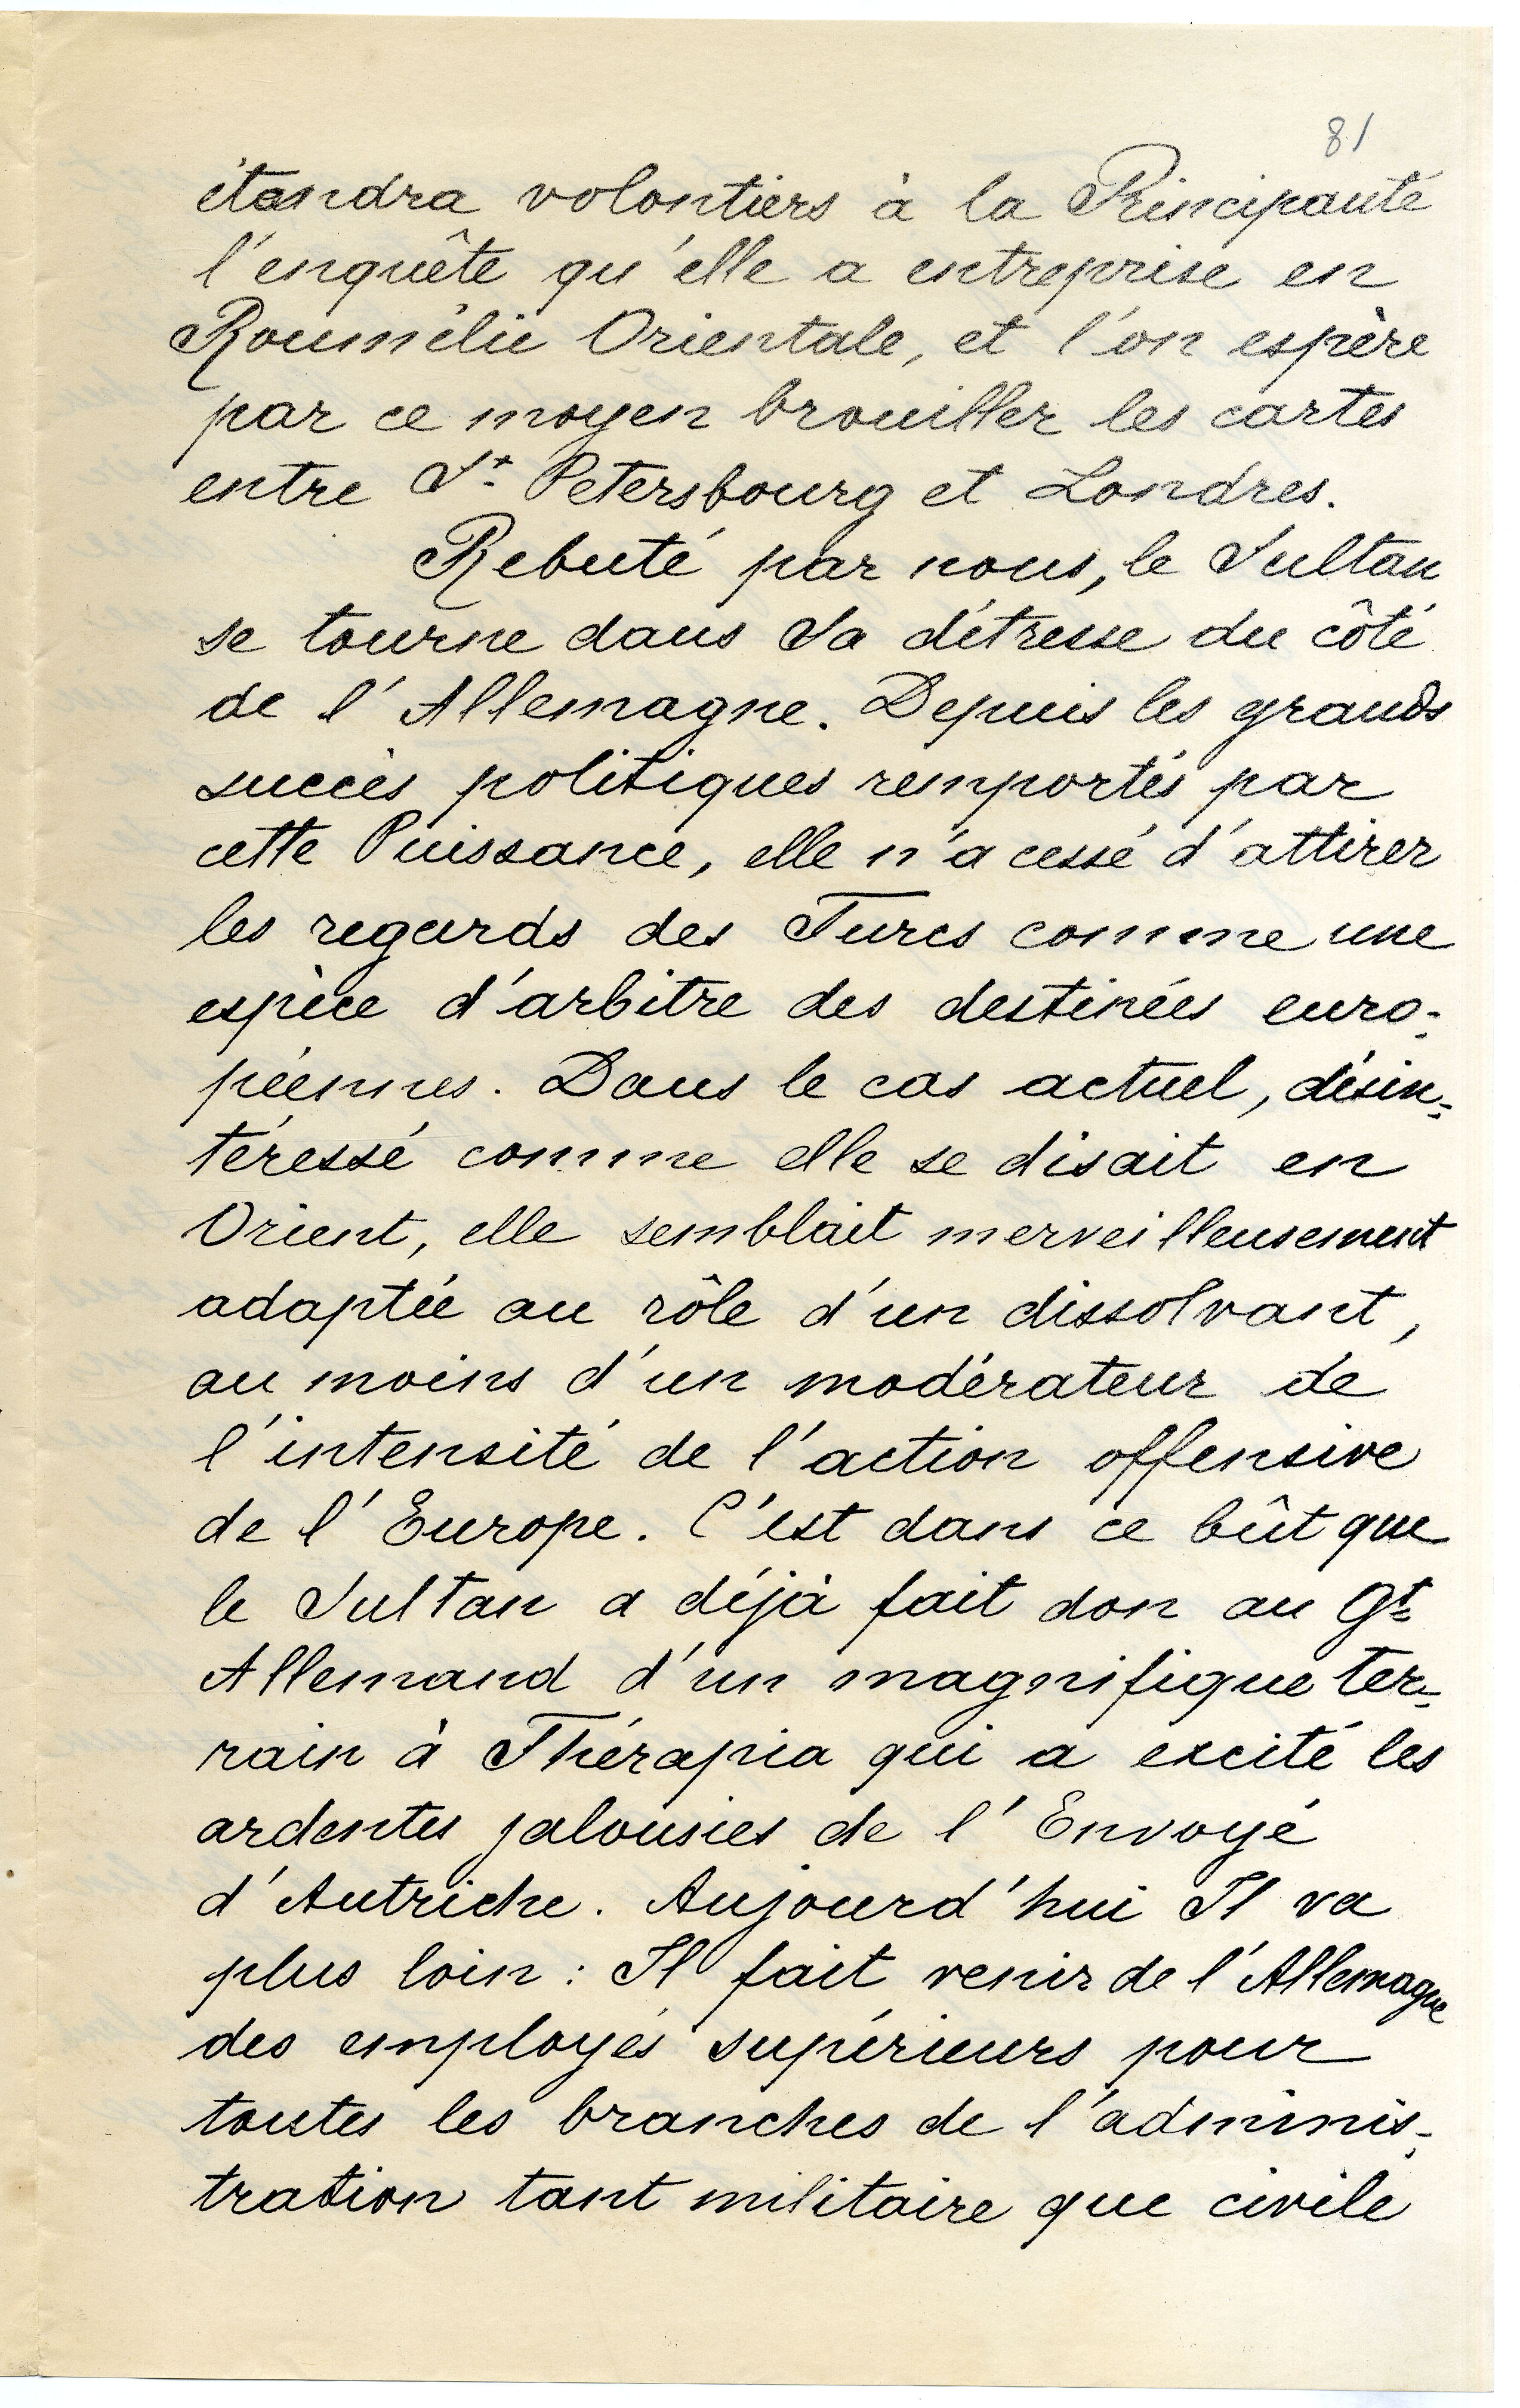 81
étendra volontiers à la Principauté
l'enquête qu'elle a entreprise en
Roumélie Orientale, et l'on espère
par ce moyen brouiller les cartes
entre St. Petersbourg et Londres.
Rebuté par nous, le Sultan
se tourne dans Sa détresse du côté
de l'Allemagne. Depuis les grands
succès politiques remportés par
cette Puissance, elle n'a cessé d'attirer
les regards des Turcs comme une
espèce d'arbitre des destinées euro-
péennes. Dans le cas actuel, désin-
téressé comme elle se disait en
Orient, elle semblait merveilleusement
adaptée au rôle d'un dissolvant,
au moins d'un modérateur de
l'intensité de l'action offensive
de l'Europe. C'est dans ce bût que
le Sultan a déjà fait don au Gt.
Allemand d'un magnifique ter-
rain à Thérapia qui a excité les
ardentes jalousies de l'Envoyé
d'Autriche. Aujourd'hui Il va
plus loin : Il fait venir de l'Allemagne
des employés supérieurs pour
toutes les branches de l'adminis-
tration tant militaire que civile